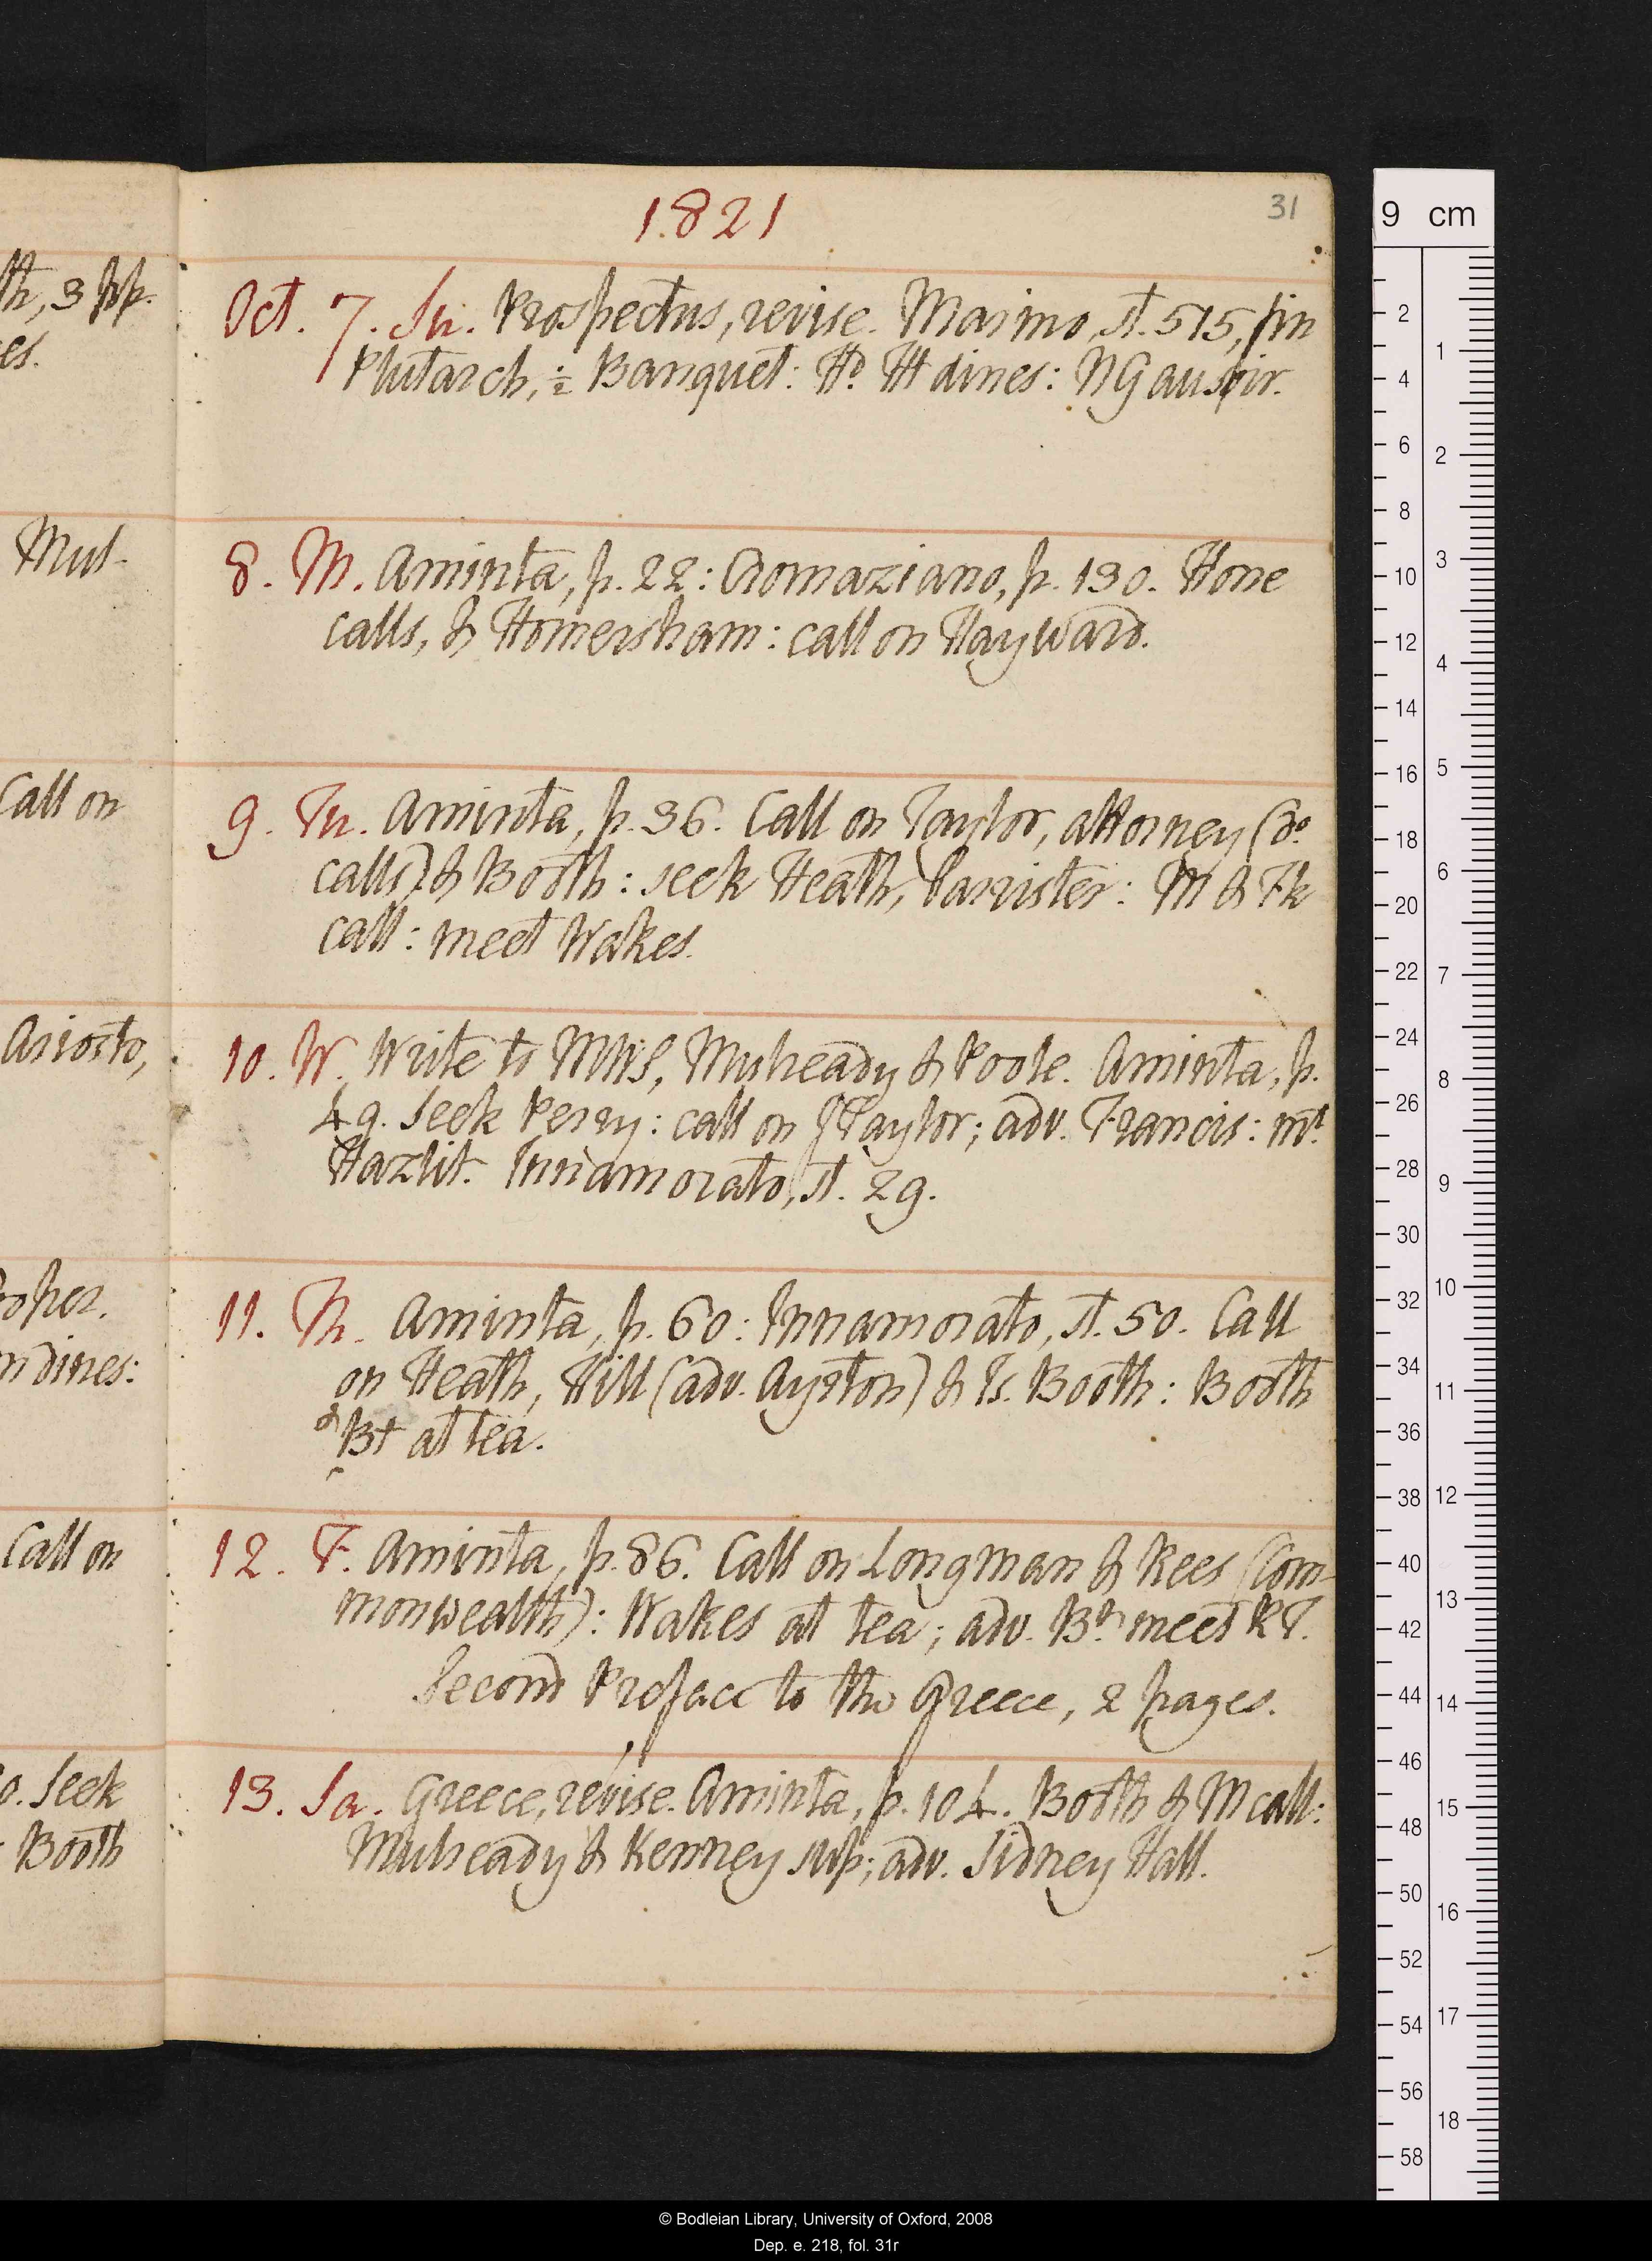 1821
31
th, 3 pp.
es.
Oct. 7. Su. Prospectus, revise. Marino, st. 515, fin
Plutarch, ÷ Banquet: Hd. HH dines: NG au soir.
Mul-
8. M. Aminta, p. 22: Aromaziano, p. 130. Hone
calls, & Homersham: call on Hayward.
Call on
9. Tu. Aminta, p. 36. Call on Taylor, attorney (do.
calls) & Booth: seek Heath, barrister: M & Fk
call: meet Wakes.
Ariosto,
10. W. Write to MWS, Mulready & Poole. Aminta, p.
49. Seek Perry: call on JTaylor; adv. Francis: mt
Hazlit. Innamorato, st. 29.
opez.
ndines:
11. Th. Aminta, p. 60: Innamorato, st. 50. Call
on Heath, Hill (adv. Ayrton) & Is. Booth: Booth
& Bt at tea.
Call on
12. F. Aminta, p. 86. Call on Longman & Rees (Com-
monwealth): Wakes at tea; adv. Bn. meet RT.
Second Preface to the Greece, 2 pages.
o. Seek
Booth
13. Sa. Greece, revise. Aminta, p. 104. Booth & M call:
Mulready & Kenney sup; adv. Sidney Hall.
9 cm
2
4
6
8
10
12
14
16
18
20
22
24
26
28
30
32
34
36
38
40
42
44
46
48
50
52
54
56
58
1
2
3
4
5
6
7
8
9
10
11
12
13
14
15
16
17
18
© Bodleian Library, University of Oxford, 2008
Dep. e. 218, fol. 31r